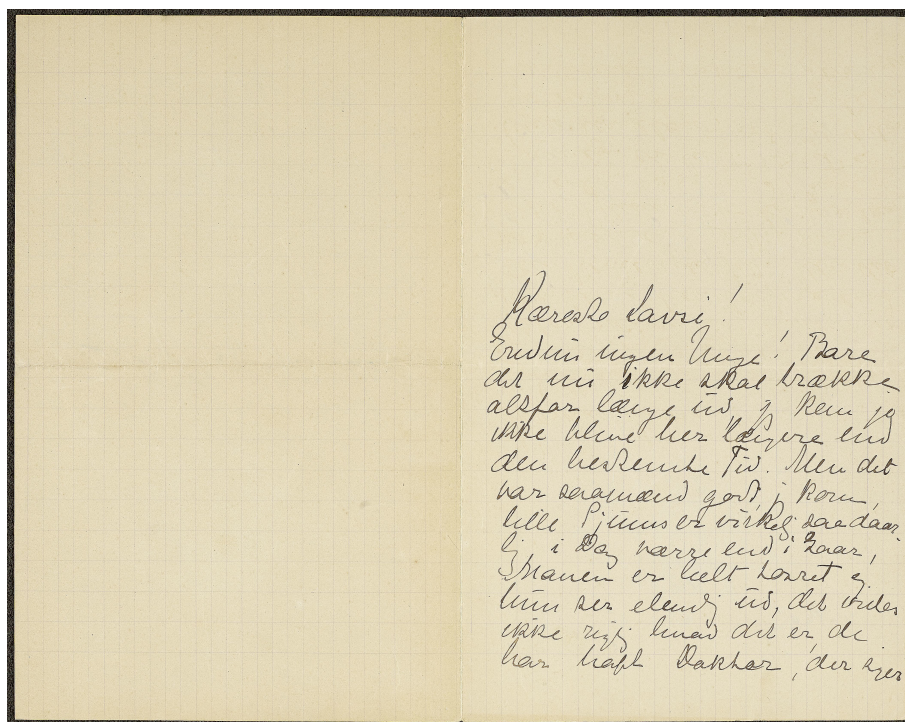 Kæreste Lavsi!
Endnu ingen Unge! Bare
det nu ikke skal trække
altfor længe ud, j kan jo
ikke blive her længere end
den bestemte Tid. Men det
var saamænd godt, j kom,
lille Pjums er virkelig saa daar-
lig, i Dag værre end i Gaar,
Maven er helt
hun ser elendig ud, det vides
ikke rigtig hvad det er de
har haft Doktor, der siger